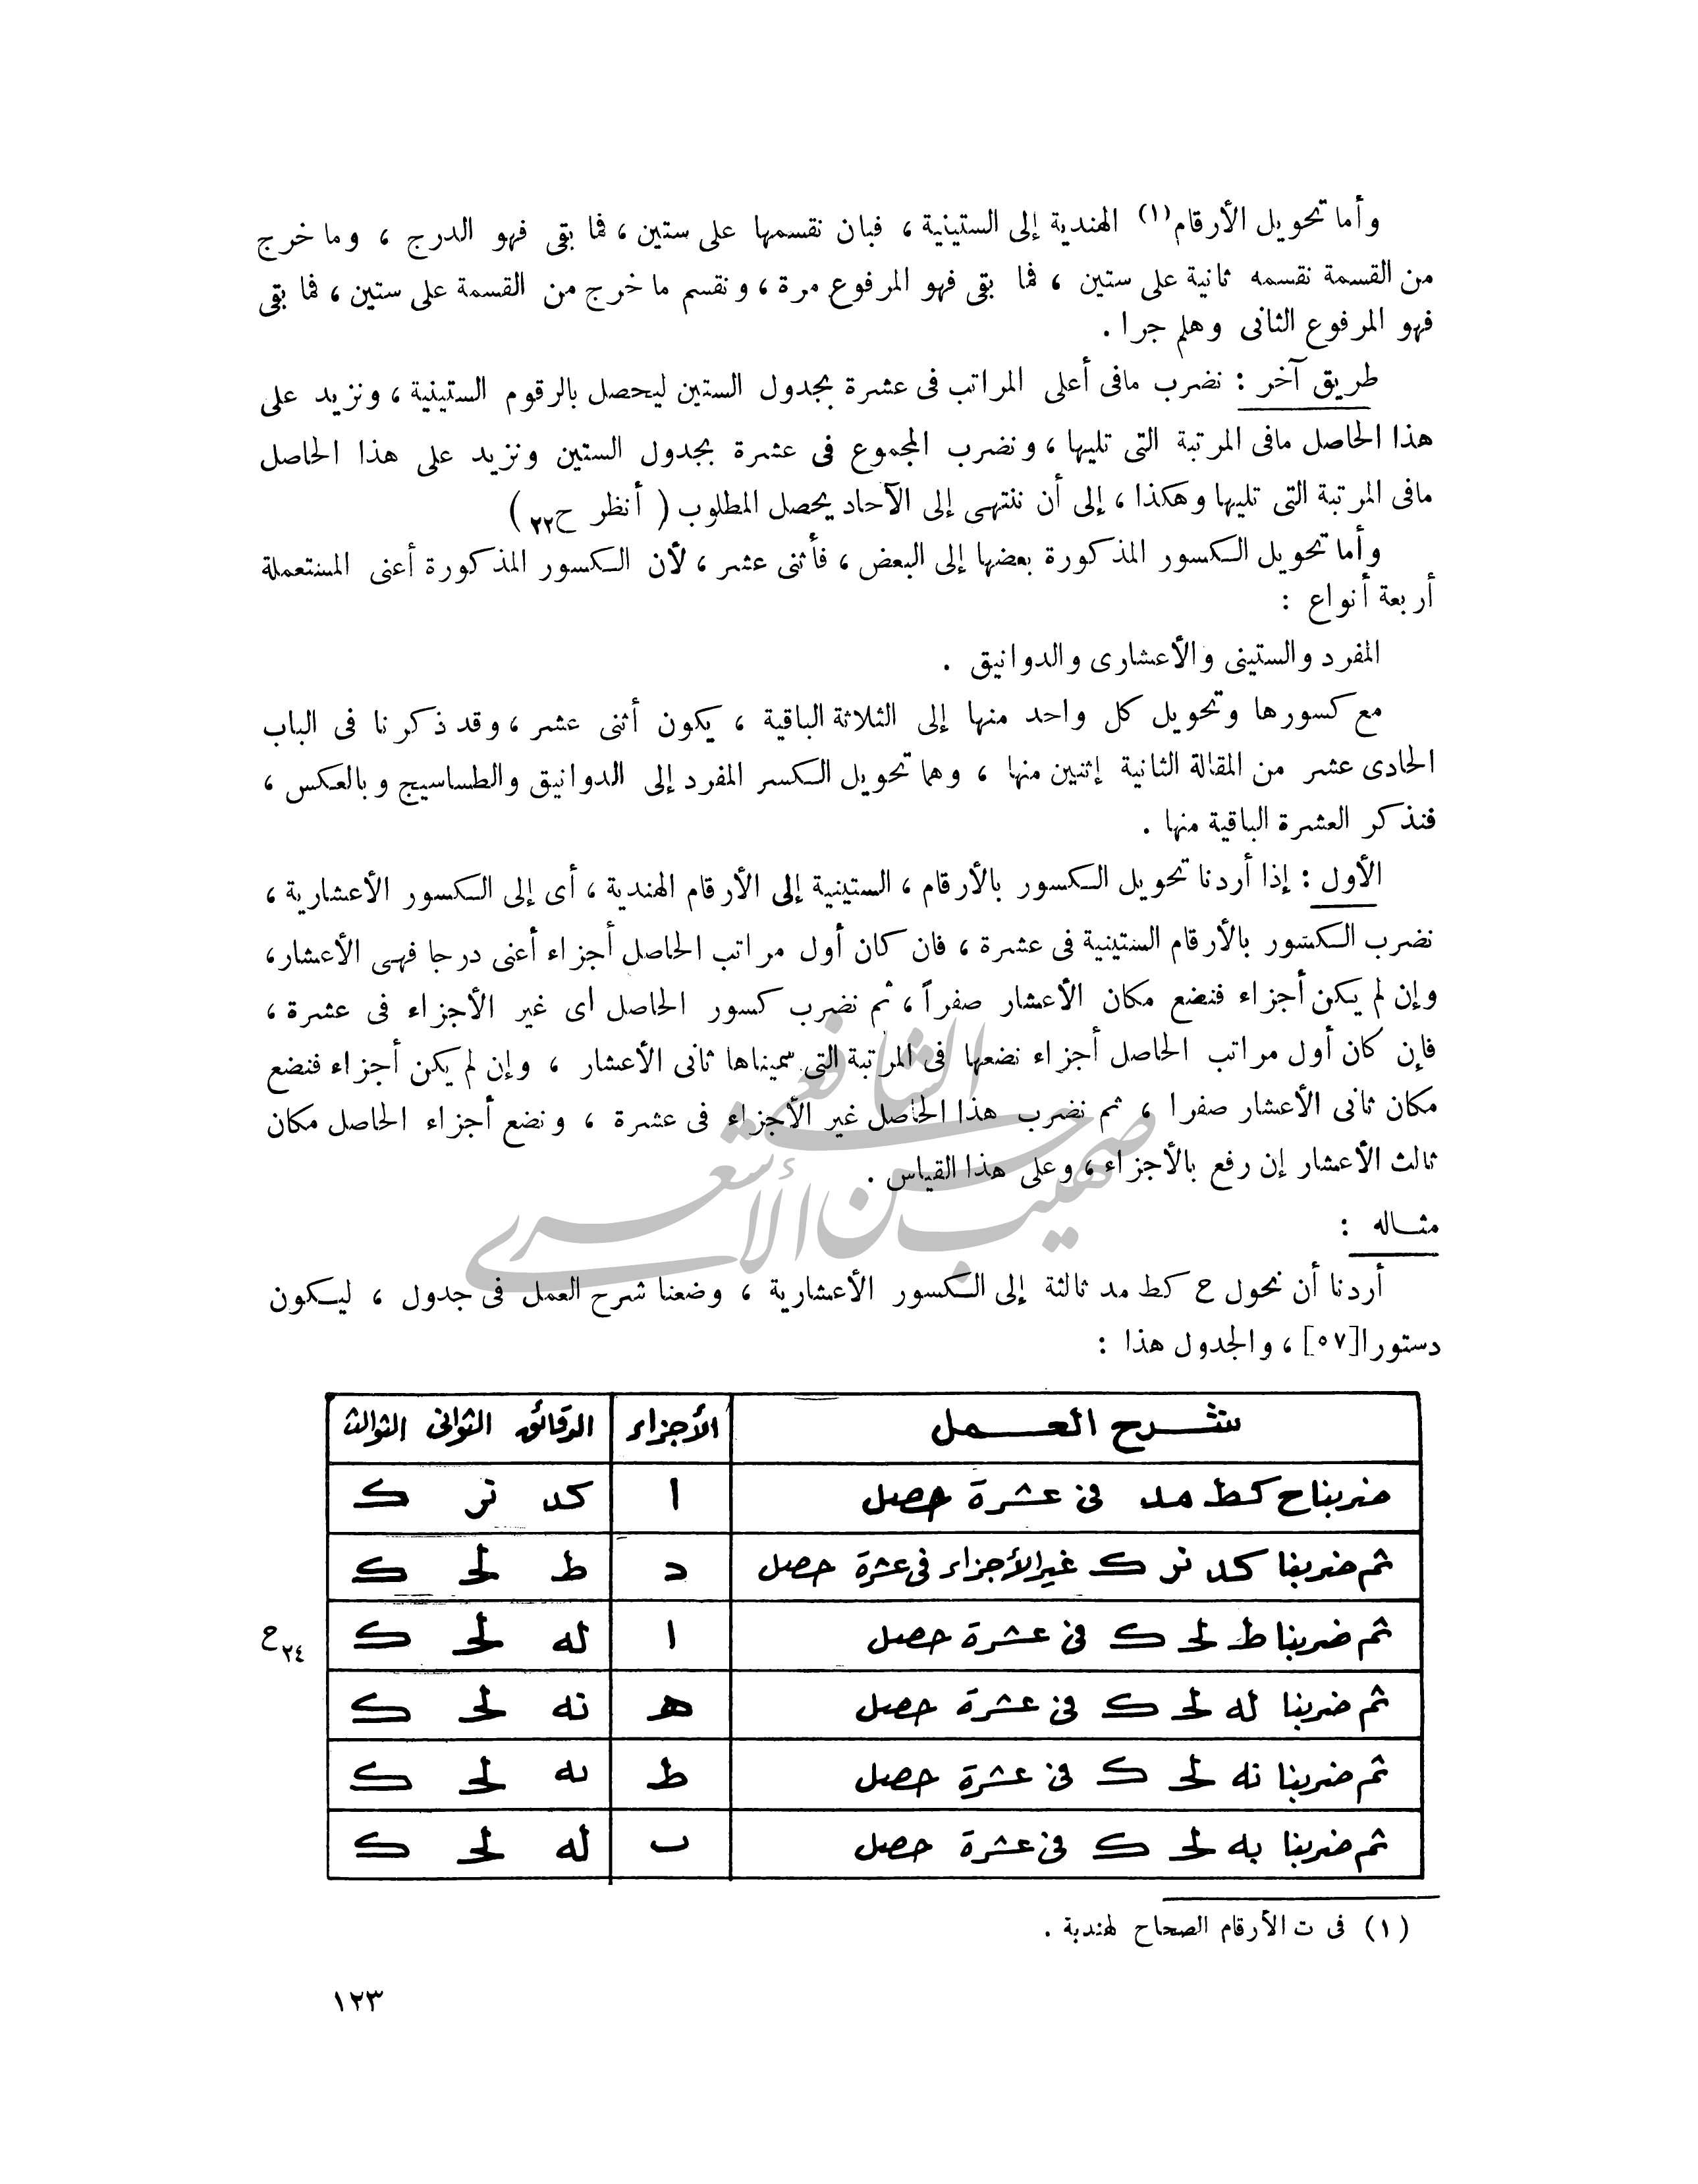 وأما تحويل الأرقام(١) الهندية إلى الستينية ، فبان نقسمها على ستين ، فما بقى فهو الدرج ، وما خرج
من القسمة نقسمه ثانية على ستين ، فما بقى فهو المرفوع مرة ، ونقسم ما خرج من القسمة على ستين ، فما بقى
فهو المرفوع الثانى وهلم جرا .
طريق آخر : نضرب مافى أعلى المراتب فى عشرة بجدول الستين ليحصل بالرقوم الستينية ، ونزيد على
هذا الحاصل مافى المرتبة التى تليها ، ونضرب المجموع فى عشرة بجدول الستين ونزيد على هذا الحاصل
مافى المرتبة التى تليها وهكذا ، إلى أن ننتهى إلى الآحاد يحصل المطلوب ( أنظر ح٢٢ )
وأما تحويل الكسور المذكورة بعضها إلى البعض ، فأثنى عشر ، لأن الكسور المذكورة أعنى المستعملة
أربعة أنواع :
المفرد والستينى والأعشارى والدوانيق .
مع كسورها وتحويل كل واحد منها إلى الثلاثة الباقية ، يكون أثنى عشر ، وقد ذكرنا فى الباب
الحادى عشر من المقالة الثانية إثنين منها ، وهما تحويل الكسر المفرد إلى الدوانيق والطساسيج وبالعكس ،
فنذكر العشرة الباقية منها .
الأول : إذا أردنا تحويل الكسور بالأرقام ، الستينية إلى الأرقام الهندية ، أى إلى الكسور الأعشارية ،
نضرب الكسور بالأرقام الستينية فى عشرة ، فان كان أول مراتب الحاصل أجزاء أعنى درجا فهى الأعشار،
وإن لم يكن أجزاء فنضع مكان الأعشار صفراً ، ثم نضرب كسور الحاصل اى غير الأجزاء فى عشرة ،
فإن كان أول مراتب الحاصل أجزاء نضعها فى المرتبة التى سميناها ثانى الأعشار ، وإن لم يكن أجزاء فنضع
مكان ثانى الأعشار صفرا ، ثم نضرب هذا الحاصل غير الأجزاء فى عشرة ، ونضع أجزاء الحاصل مكان
ثالث الأعشار إن رفع بالأجزاء ، وعلى هذا القياس .
صهيب حسن الشافعي الأشعري
مثاله :
أردنا أن نحول ح كط مد ثالثة إلى الكسور الأعشارية ، وضعنا شرح العمل فى جدول ، ليكون
دستورا[٥٧] ، والجدول هذا :
شرح العمل الأجزاء الدقائق الثوانى الثوالث
ضربناح كط مد فى عشرة حصل ا كد نر ك
ثم ضربنا كد نر ك غير الأجزاء فى عشرة حصل د ط لح ك
ثم ضربنا ط لح ك فى عشرة حصل ا له لح ك
ح٢٤
ثم ضربنا له لح ك فى عشرة حصل ه نه لح ك
ثم ضربنا نه لح ك فى عشرة حصل ط به لح ك
ثم ضربنا به لح ك فى عشرة حصل ب له لح ك
(١) فى ت الأرقام الصحاح لهندبة .
١٢٣